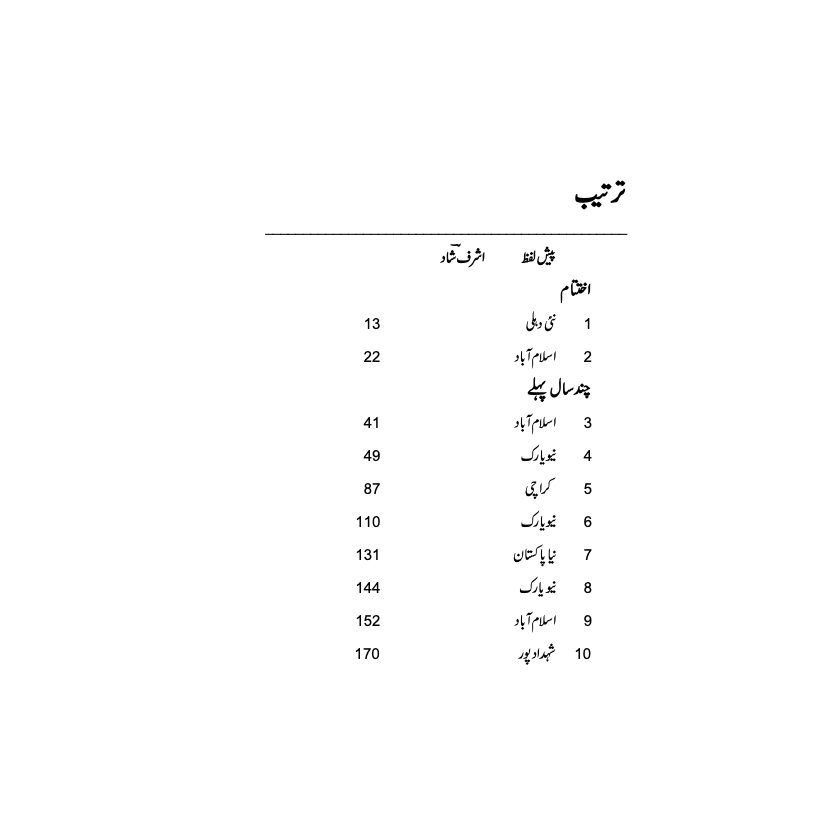 ترتیب
پیش لفظ اشرف شادؔ
اختتام
1 نئی دہلی 13
2 اسلام آباد 22
چند سال پہلے
3 اسلام آباد 41
4 نیویارک 49
5 کراچی 87
6 نیویارک 110
7 نیا پاکستان 131
8 نیویارک 144
9 اسلام آباد 152
10 شہداد پور 170